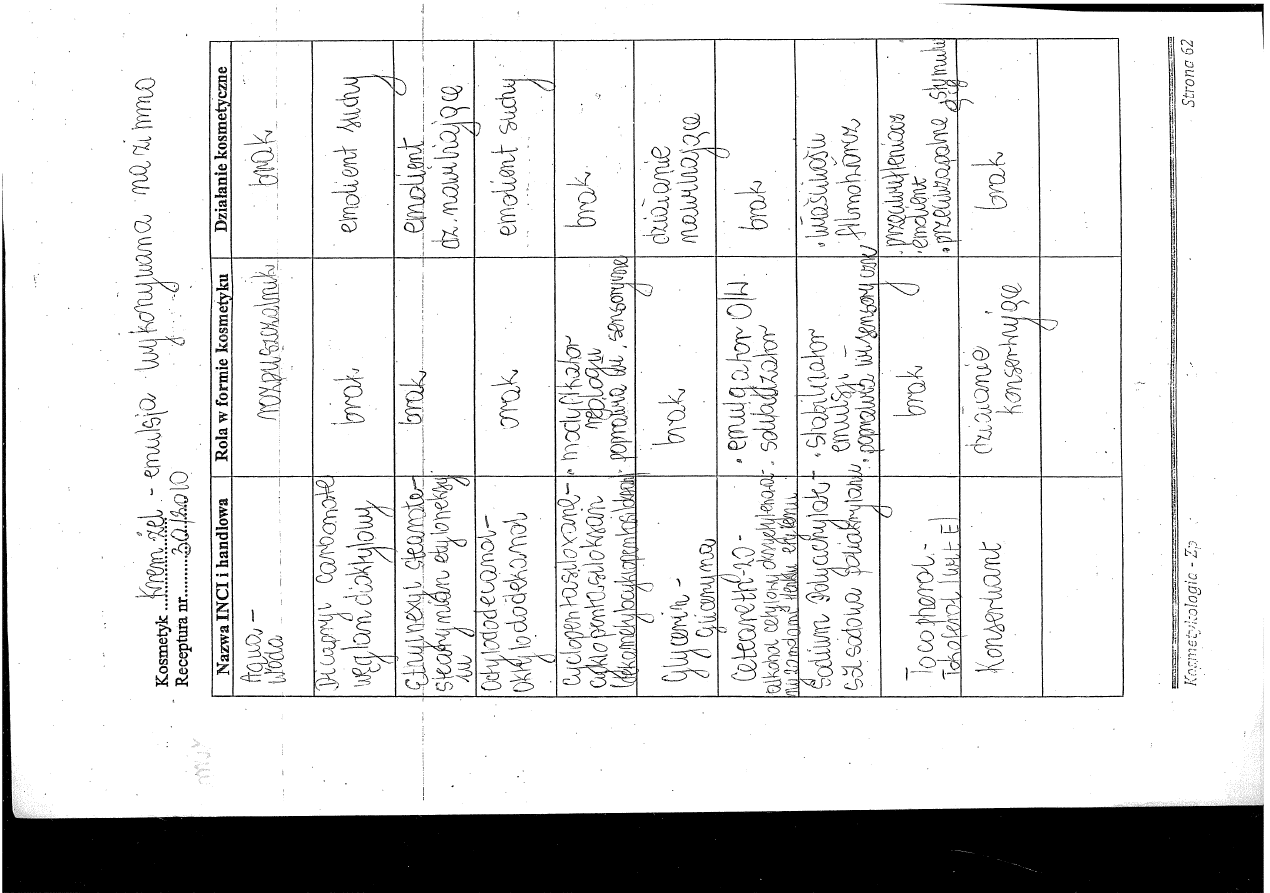 Kosmetyk Krem żel - emulsja wykonywana na zimno
Receptura nr. 30/2010
Nazwa INCI i handlowa
Rola w formie kosmetyku
Działanie kosmetyczne
Aqua -
woda
rozpuszczalnik
brak
Dicapryl carbonate
węglan dikaprylowy
brak
emolient suchy
Etylhexyl stearate-
stearynian etyloheksy
lu
brak
emolient
dz. nawilżające
Octyldodecanol-
oktylododekanol
brak
emolient suchy
cyclopentasiloxane-
cyklopentasiloksan
(dekametylocyklopentasiloksan)
• modyfikator
reologii
• poprawia wł. sensoryczne
brak
Glycerin -
gliceryna
brak
działanie
nawilżające
Ceteareth-20 -
alkohol cetylowy
• emulgator O/W
• solubilizator
brak
Sodium Polyacrylate -
Sól sodowa poliakrylanu
• stabilizator
emulsji -
• poprawia wł. sensoryczne
• właściwości
filmotwórcze
Tocopherol -
Tokoferol (wit E)
brak
przeciwutleniacz
• emolient
• przeciwzapalne
brak
Konserwant
działanie
konserwujące
Kosmetykologia - Zp
Strona 62